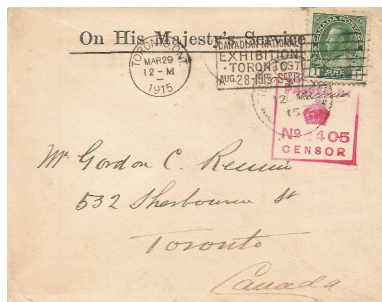 On His Majesty's Service
TORONTO, ONT
MAR 29
12-M
1915
CANADIAN NATIONAL
EXHIBITION
TORONTO
AUG. 28-1915-SEPT.
CANADA POSTAGE
No 405
CENSOR
Mr Gordon C. Rennie
532 Sherbourne St
Toronto
Canada